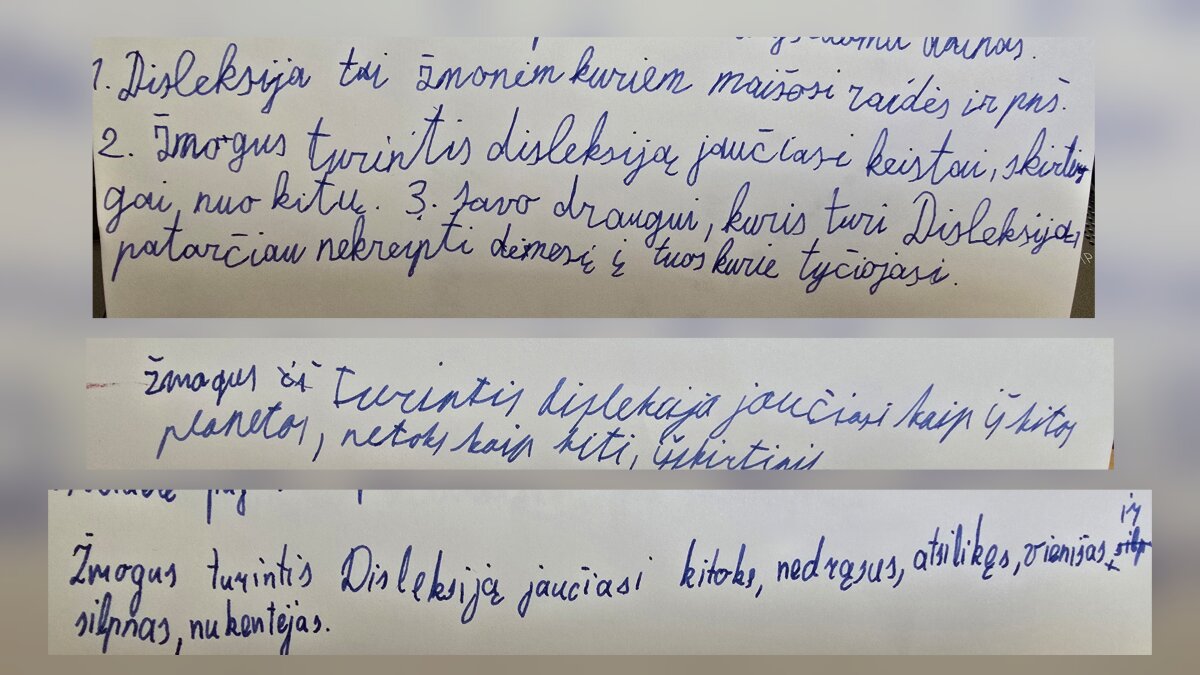 1. Disleksija tai žmonėm kuriem maišosi raidės ir pnš.
2. Žmogus turintis disleksiją jaučiasi keistai, skirtin
gai, nuo kitų. 3. Savo draugui, kuris turi Disleksiją,
patarčiau nekreipti dėmesį į tuos kurie tyčiojasi.
žmogus turintis disleksija jaučiasi kaip iš kitos
planetos, netoks kaip kiti, išskirtinis
Žmogus turintis Disleksiją jaučiasi kitoks, nedrąsus, atsilikęs, vienišas,
silpnas, nukentėjas.